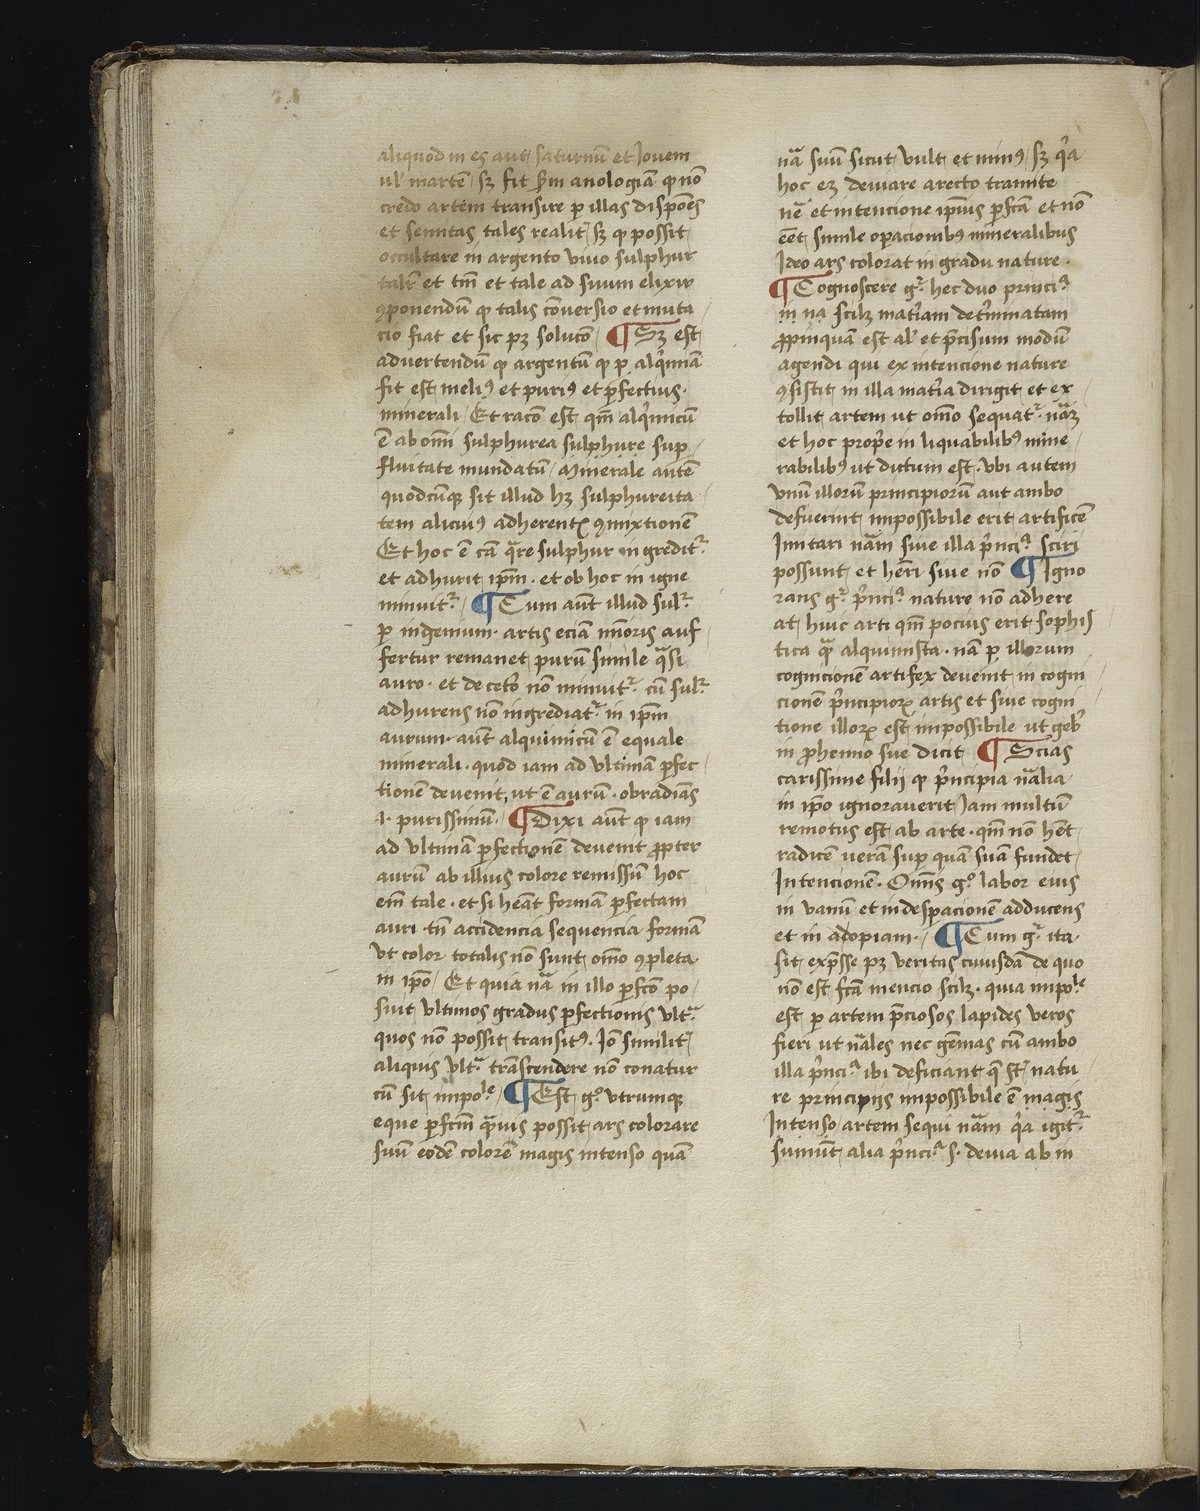 aliquod in es aut saturnū et Jouem
ul' martē sꝫ fit ẜm anologiā ꝙ nō
credo artem transire ꝑ illas dispōes
et semitas tales realit sꝫ ꝙ possit
occultare in argento viuo sulphur
talr̄ et tm̄ et tale ad suum elixir
ꝯponendū ꝙ talis cōuersio et muta
cio fiat et sic pꝫ solucō ¶ Sꝫ est
aduertendū ꝙ argentū ꝙ ꝑ alqͥmiā
fit est meliꝰ et puriꝰ et ꝑfectius.
minerali / Et racō est qm̄ alqͥmicū
ē ab omī sulphurea sulphure suꝑ
fluitate mundatū / Minerale autē
quodcūqꝫ sit illud hꝫ sulphureita
tem aliciꝰ adherentꝭ ꝯmixtionē
Et hoc ē cā qᷓre sulphur ingreditᷣ
et adhurit ip̄m . et ob hoc in igne
minuitᷣ / ¶ Cum aūt illud sulᷣ
ꝑ ingenium artis eciā mīoris auf
fertur remanet purū simile qᷓsi
auro . et de ceto nō minuitᷣ cū sulᷣ
adhurens nō ingrediatᷣ in ip̄m
aurum . aūt alquimicū ē equale
minerali . quod iam ad vltimā ꝑfec
tionē deuenit, ut ē aurū . obradiās
.i. purissimū . ¶ Dixi aūt ꝙ iam
ad vltimā ꝑfectionē deuenit ꝓpter
aurū ab illius colore remissū hoc
eīm tale . et si heāt formā ꝑfectam
auri . tn̄ accidencia sequencia formā
vt color totalis nō sunt oīno ꝯpleta
in ip̄o / Et quia nā in illo ꝑfcō po
suit vltimos gradus ꝑfectionis vltᷓ
quos nō possit transitꝰ . Jō similitᷣ
aliquis vltᷓ trāscendere nō conatur
cū sit impoˡᵉ / ¶ Est gͦ vtrumqꝫ
eque ꝑfcm̄ qᷓuis possit ars colorare
suū eodē colorē magis intenso quā
nā suū sicut vult et minꝰ / sꝫ qͥa
hoc eꝫ deuiare arecto tramite
nē et intencione ip̄ius ꝑfcā et nō
eēt simile oꝑacionibꝰ mineralibus
Ideo ars colorat in gradu nature .
¶ Cognoscere gͦ hec duo principᷓ
in na scilꝫ matiam det̓minatam
ꝓpinquam est al' et p̄cisum modū
agendi qui ex intencione nature
ꝯsistit in illa mat̓ia dirigit et ex
tollit artem ut oīno sequatᷣ nāꝫ
et hoc prop̓e in liquabilibꝰ mine
rabilibꝰ ut dictum est . vbi autem
vnū illorū principiorū aut ambo
defuerint impossibile erit artificē
Imitari nām siue illa pͥnciᷓ sciri
possunt et heri siue nō ¶ Igno
rans gͦ pͥnciᷓ nature nō adhere
at huic arti qm̄ pocius erit sophis
tica qᷓ alquimista . nā ꝑ illorum
cognicionē artifex deuenit in cogni
cionē pͥncipioꝝ artis et siue cogni
tione illoꝝ est impossibile ut geb̓
in ꝓhemio sue dicit ¶ Scias
carissime filij ꝙ pͥncipia nālia
in ip̄o ignorauerit Jam multū
remotus est ab arte . qm̄ nō het
radicē ueram suꝑ quā suā fundet
Intencionē . Omīs gͦ labor euis
in vanū et in desꝑacionē adducens
et in adopiam . / ¶ Cum gͦ ita
sit exp̄sse pꝫ veritas cuiusdā de quo
nō est fcā mencio scilꝫ . quia impoˡᵉ
est ꝑ artem p̄ciosos lapides veros
fieri ut nāles nec gēmas cū ambo
illa pͥnciᷓ ibi deficiant q̄ stᷣ natu
re principijs impossibile ē magis
Intenso artem sequi nām qͥa igitᷣ
sumūt alia pͥnciᷓ s. deuia ab in